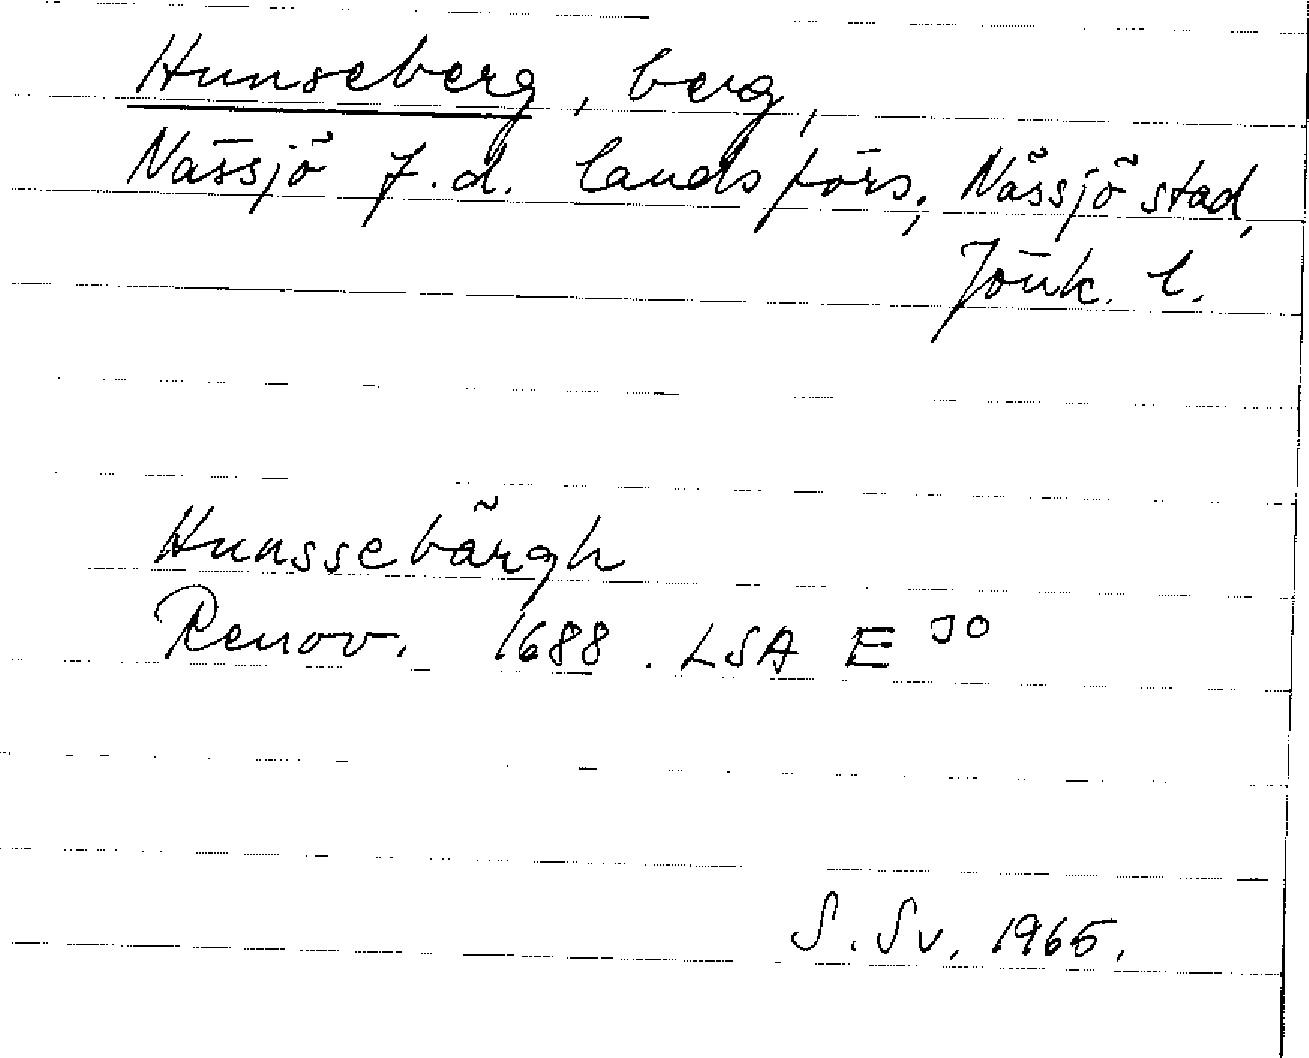 Hunseberg, berg,
Nässjö f.d. landsförs., Nässjö stad,
Jönk. l.
Hunssebärgh
Renov. 1688. LSA E 30
S. Sv. 1965.